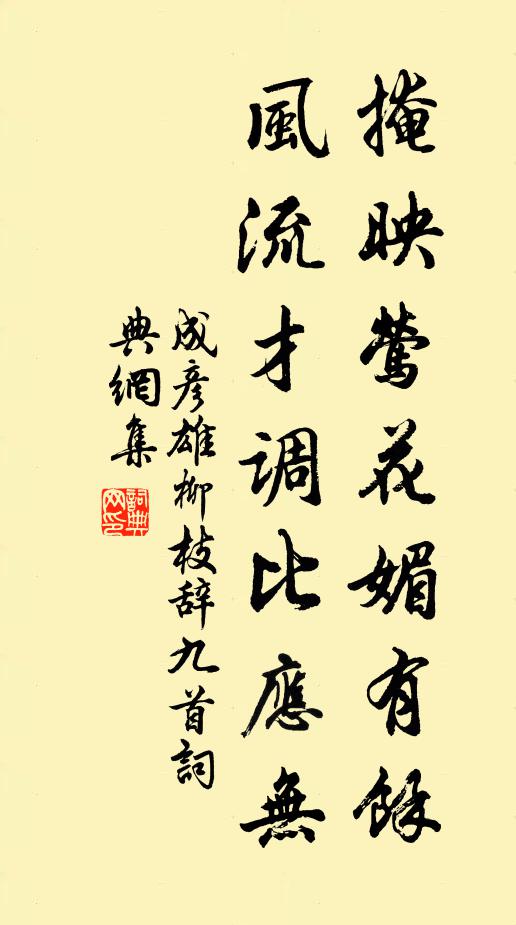 掩映鶯花媚有餘
風流才調比應無
成彥雄柳枝辞九首詞
典網集
詞典
网印